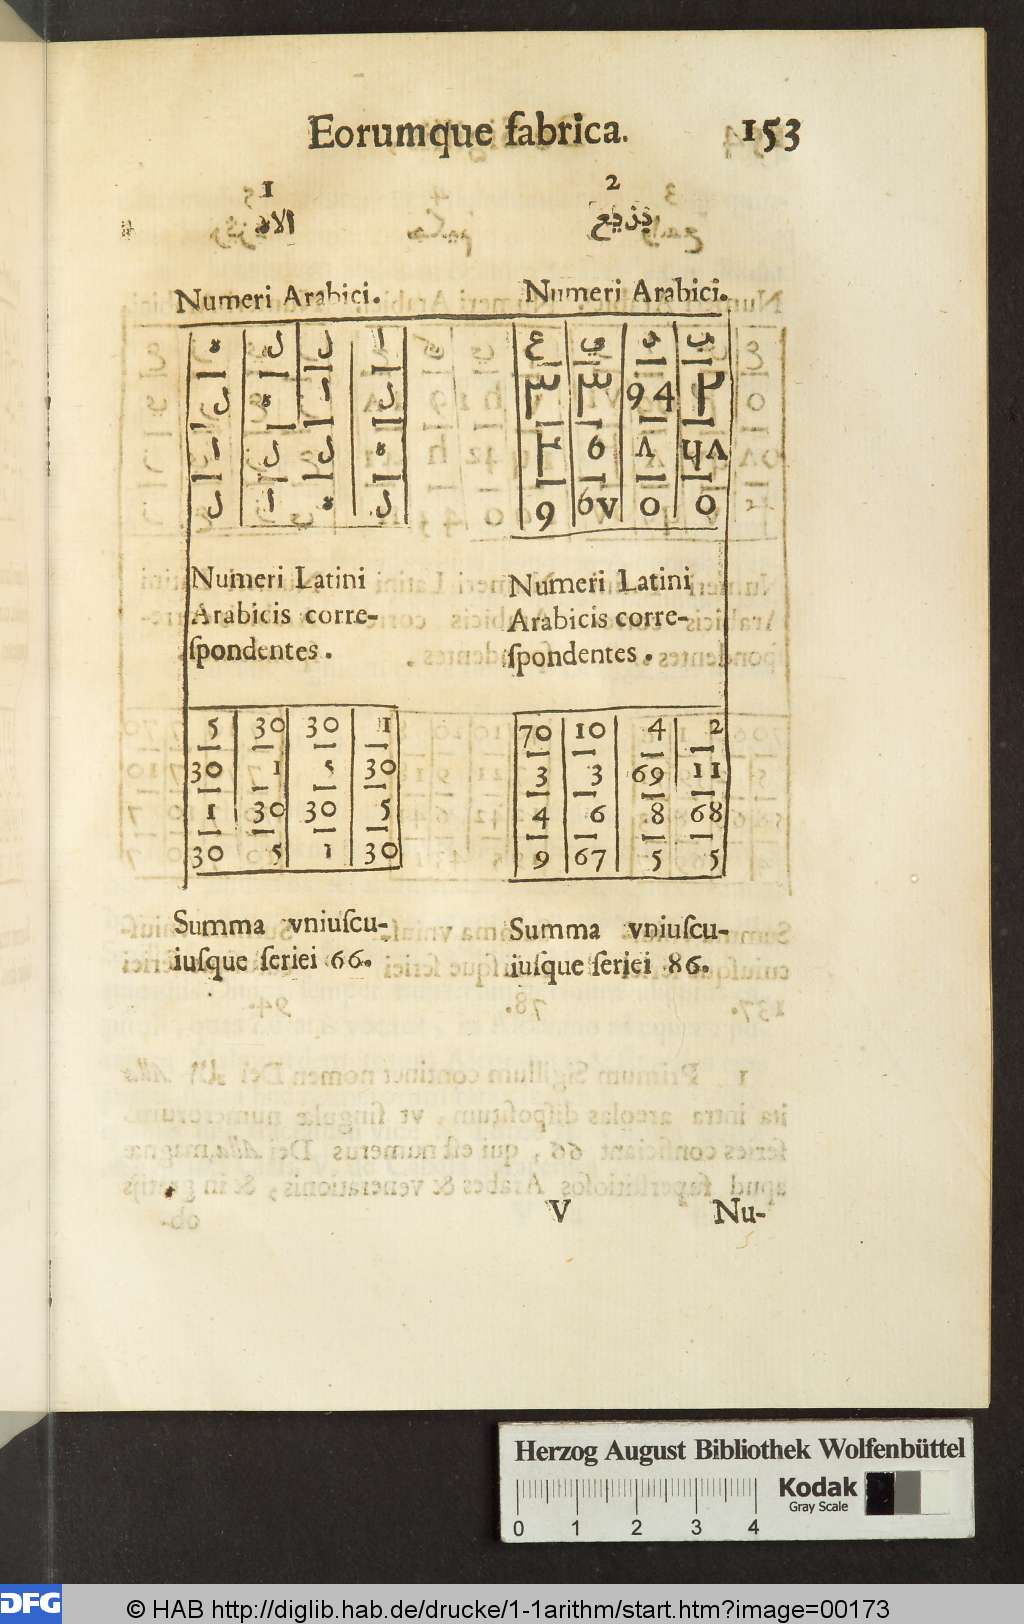 Eorumque fabrica. 153
1 2
Numeri Arabici. Numeri Arabici.
ه ل ل ا
ل ه ا ل
ا ل ل ه
ل ا ه ل
ع ي د ب
94
6 ٨
9 6v 0 0
Numeri Latini
Arabicis corre-
ſpondentes.
Numeri Latini
Arabicis corre-
ſpondentes.
5 30 30 1
30 1 5 30
1 30 30 5
30 5 1 30
70 10 4 2
3 3 69 11
4 6 8 68
9 67 5 5
Summa vniuſcu-
iuſque ſeriei 66.
Summa vniuſcu-
iuſque ſeriei 86.
V Nu-
Herzog August Bibliothek Wolfenbüttel
Kodak
Gray Scale
0 1 2 3 4
DFG © HAB http://diglib.hab.de/drucke/1-1arithm/start.htm?image=00173